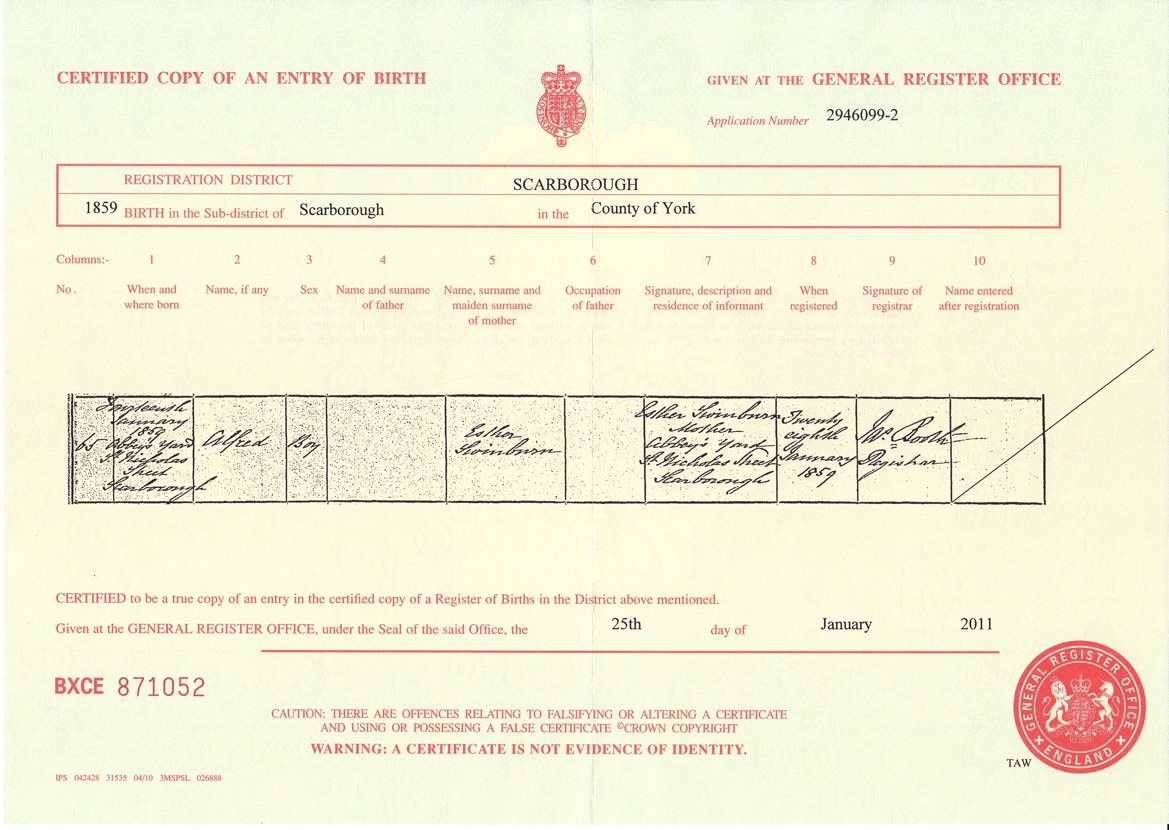 CERTIFIED COPY OF AN ENTRY OF BIRTH
GIVEN AT THE GENERAL REGISTER OFFICE
Application Number 2946099-2
REGISTRATION DISTRICT SCARBOROUGH
1859 BIRTH in the Sub-district of Scarborough in the County of York
Columns:- 1 2 3 4 5 6 7 8 9 10
No. When and where born
Name, if any
Sex
Name and surname of father
Name, surname and maiden surname of mother
Occupation of father
Signature, description and residence of informant
When registered
Signature of registrar
Name entered after registration
65
January
1859
Abbey's Yard
St Nicholas
Street
Scarborough
Alfred
Boy
Esther
Swinburn
Esther Swinburn
Mother
Abbey's Yard
St Nicholas Street
Scarborough
Twenty
eighth
January
1859
Booth
Registrar
CERTIFIED to be a true copy of an entry in the certified copy of a Register of Births in the District above mentioned.
Given at the GENERAL REGISTER OFFICE, under the Seal of the said Office, the 25th day of January 2011
BXCE 871052
CAUTION: THERE ARE OFFENCES RELATING TO FALSIFYING OR ALTERING A CERTIFICATE
AND USING OR POSSESSING A FALSE CERTIFICATE ©CROWN COPYRIGHT
WARNING: A CERTIFICATE IS NOT EVIDENCE OF IDENTITY.
GENERAL REGISTER OFFICE
ENGLAND
TAW
IPS 042428 31535 04/10 3MSPSL 026888